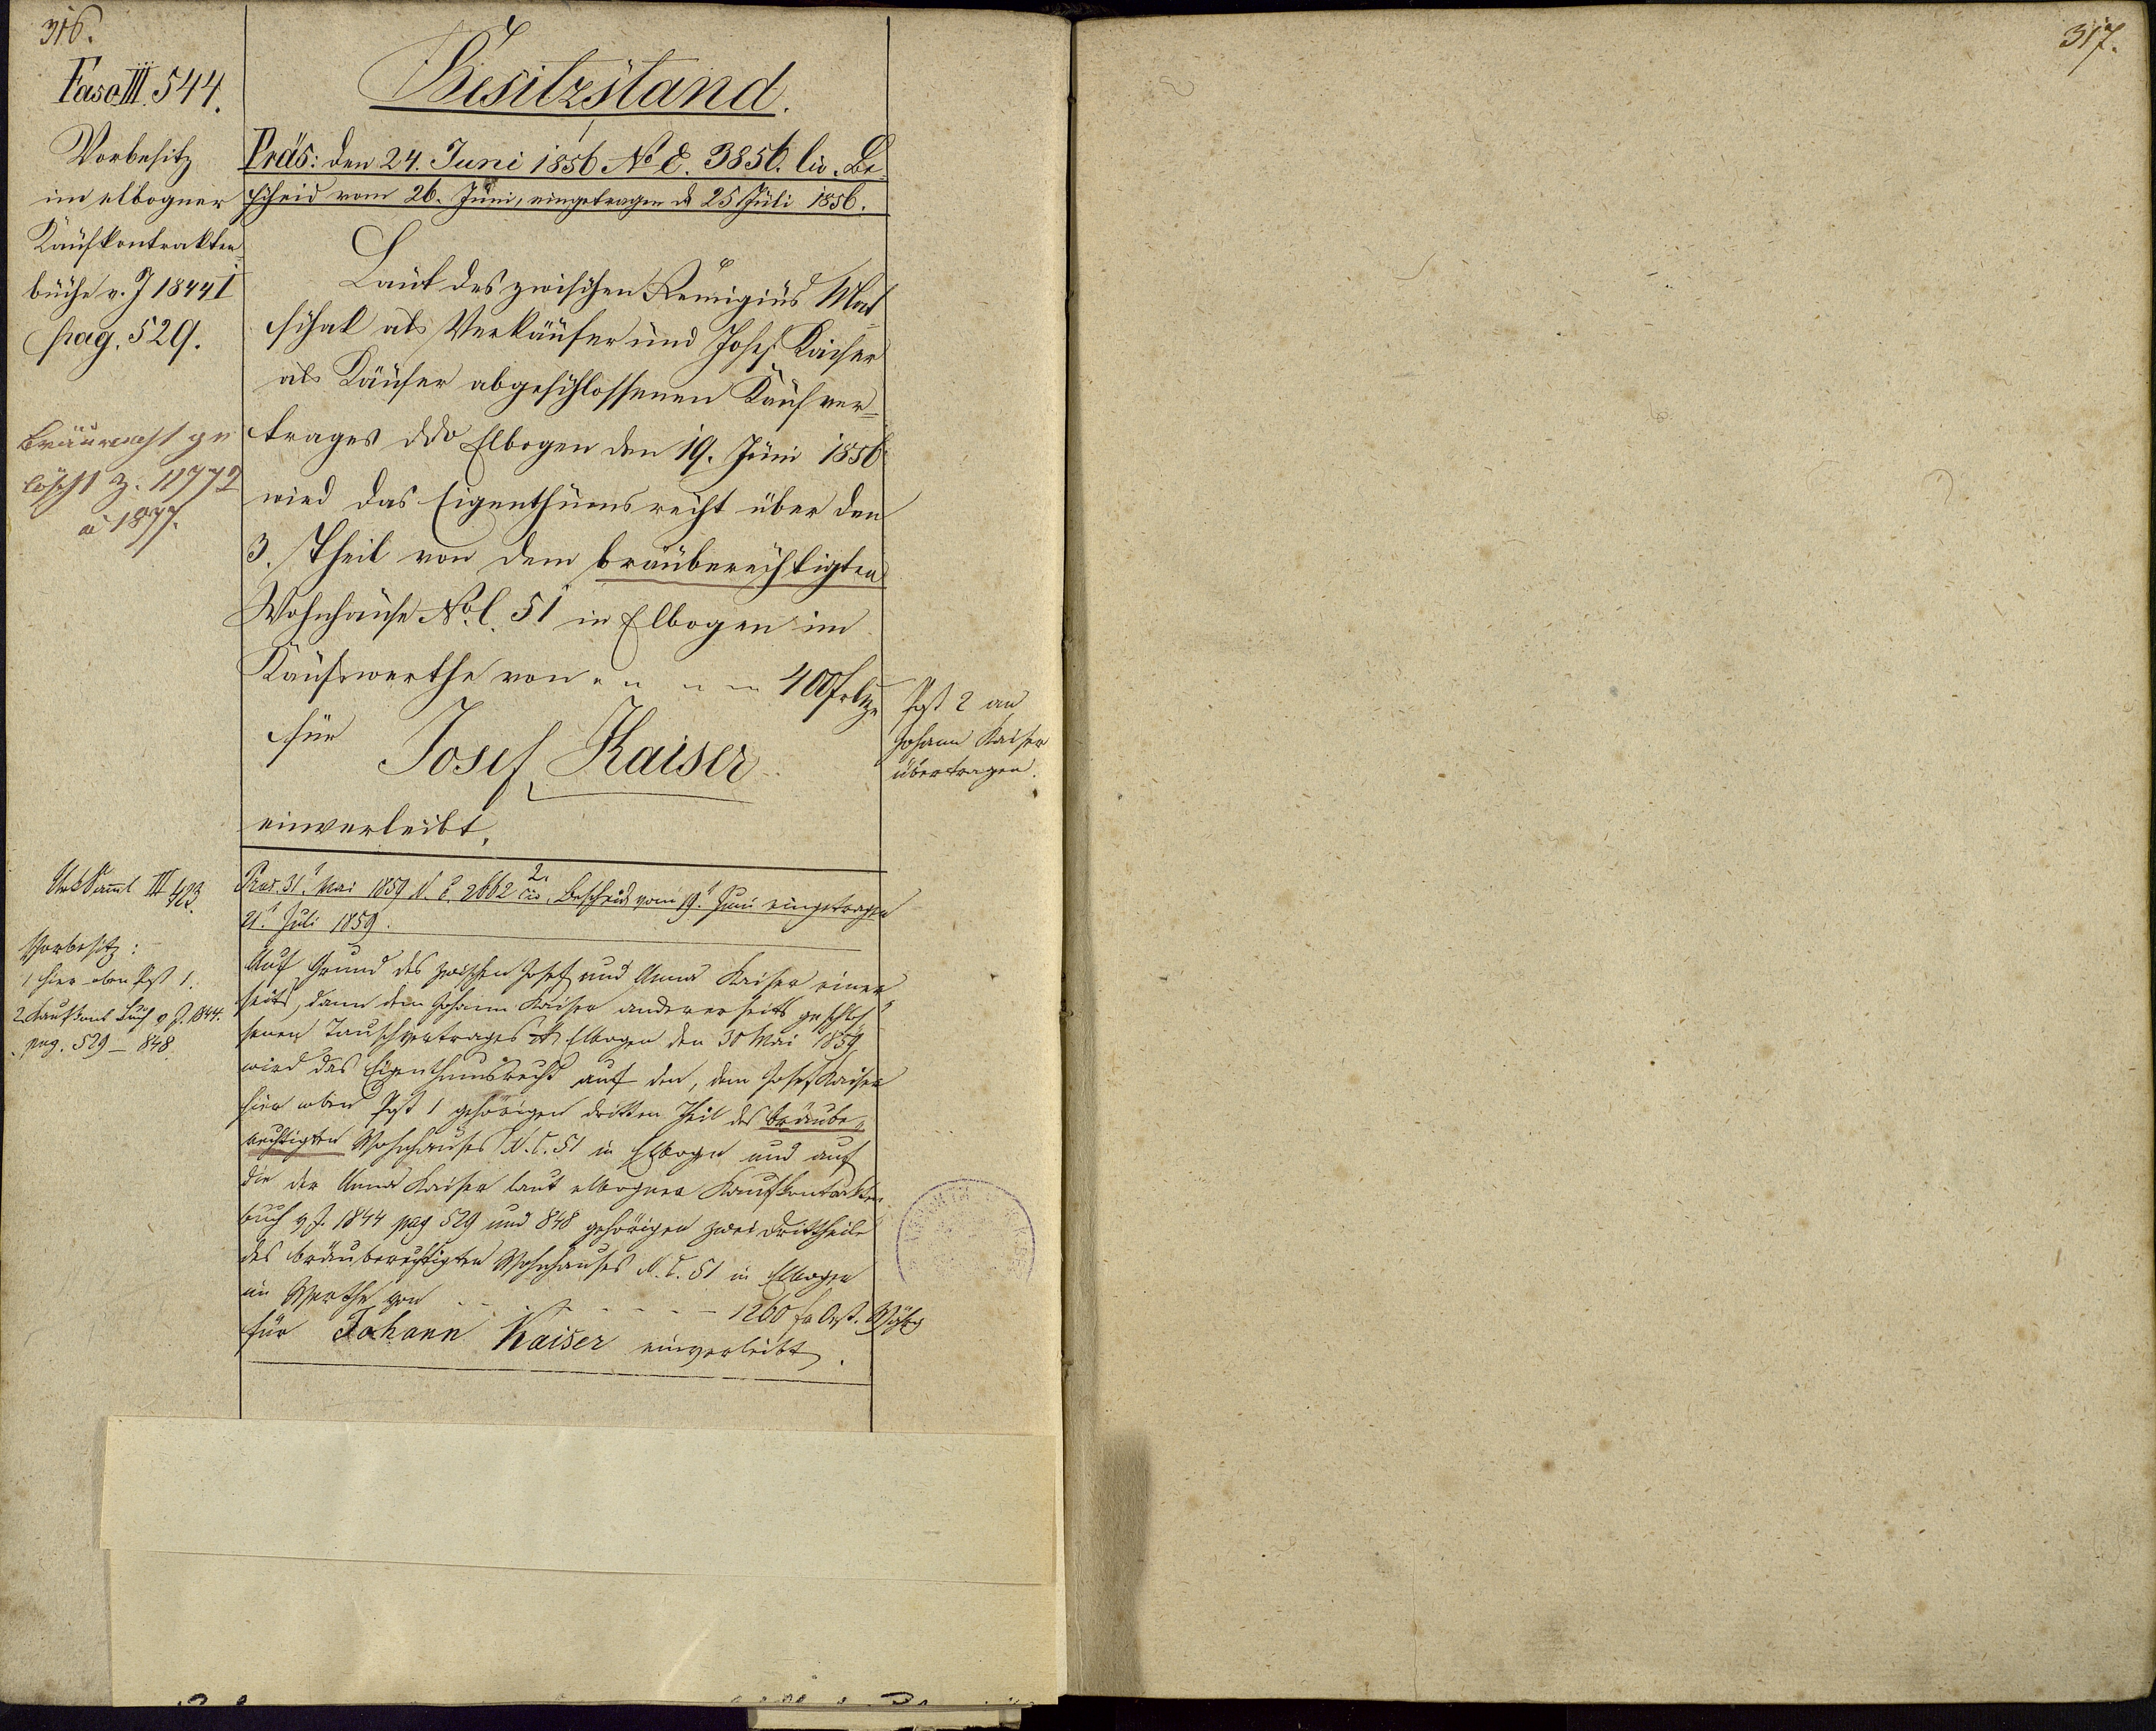 316.
Fasc III. 544.
Besitzstand.
1
Präs: den 24. Juni 1856 No E. 3856. civ. Be-
scheid vom 26. Juni, eingetragen d 25 Juli 1856.
Vorbesitz
im elbogner
Kaufkontrakten
buche v. J 1844 I
pag. 529.
Bräurecht ge
löscht Z. 11772
a 1877.
Laut des zwischen Remigius Mat-
schak als Verkäufer und Josef Kaiser
als Käufer abgeschlossenen Kaufver-
trages ddo Elbogen den 19. Juni 1856
wird das Eigenthumsrecht über den
3. Theil von dem bräuberechtigten
Wohnhause No C. 51 in Elbogen im
Kaufswerthe von 400 f
für Josef Kaiser
einverleibt.
Post 2 an
Johann Kaiser
übertragen.
2.
Präs. 31. Mai 1859 N. E. 2662 civ. Bescheid vom 19. Juni eingetragen
21. Juli 1859.
Urk Saml III 423.
Vorbesitz:
1 hier oben Post 1.
2. Kaufkont Buch v J. 1844.
pag. 529 – 848
Auf Grund des zwischen Josef und Anna Kaiser einer
seits, dann dem Johann Kaiser anderer seits geschlos-
senen Tauschvertrages Elbogen den 30 Mai 1859
wird das Eigenthumsrecht auf den, dem Josef Kaiser
hier oben Post 1 gehörigen dritten Theil des bräube-
rechtigten Wohnhauses N. C. 51 in Elbogen und auf
die der Anna Kaiser laut elbogner Kaufkontrakten
buch v J. 1844 pag 529 und 848 gehörigen zwei Drittheile
des bräuberechtigten Wohnhauses N. C. 51 in Elbogen
im Werthe von 1260 f Öst. Währg
für Johann Kaiser einverleibt.
317.